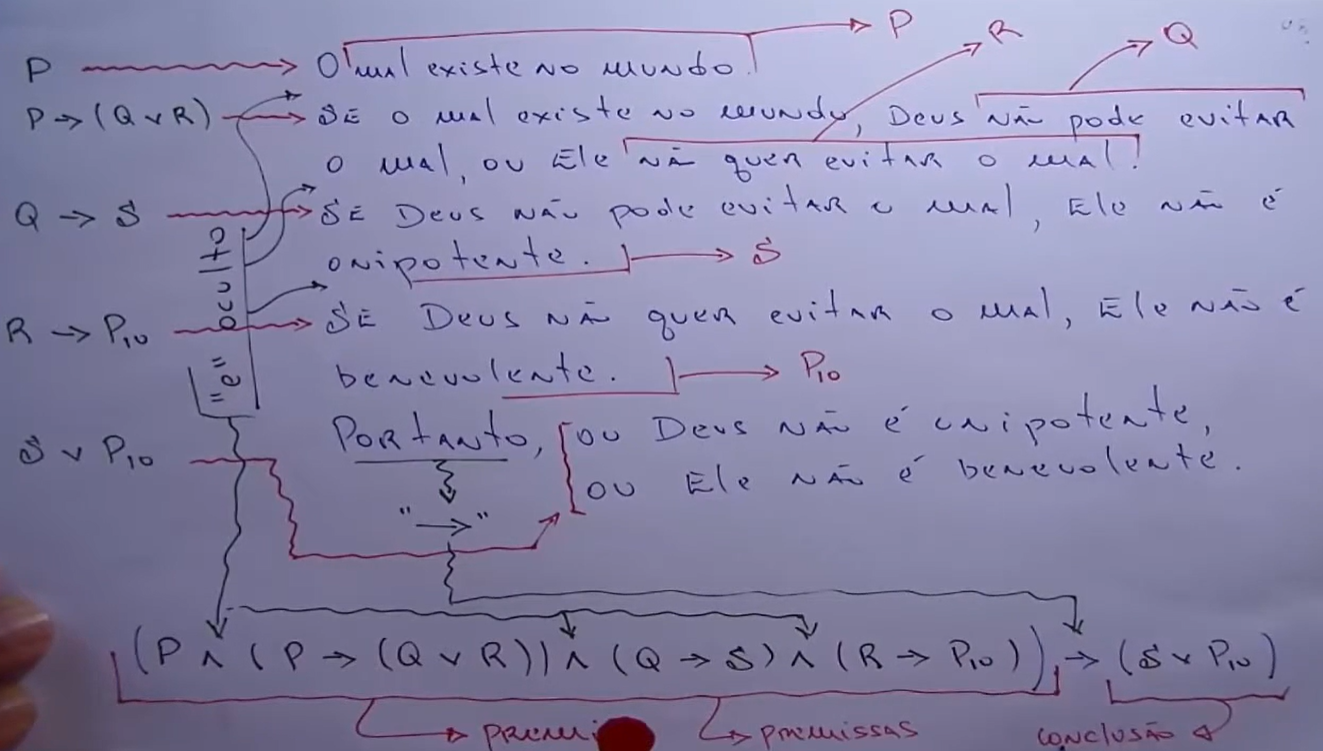 P R Q
P O mal existe no mundo.
P → (Q ∨ R) SE o mal existe no mundo, Deus não pode evitar
o mal, ou Ele não quer evitar o mal.
Q → S SE Deus não pode evitar o mal, Ele não é
onipotente. S
"e" oculto
R → P₁₀ SE Deus não quer evitar o mal, Ele não é
benevolente. P₁₀
S ∨ P₁₀ Portanto, ou Deus não é onipotente,
ou Ele não é benevolente.
"→"
(P ∧ (P → (Q ∨ R)) ∧ (Q → S) ∧ (R → P₁₀)) → (S ∨ P₁₀)
premi premissas conclusão